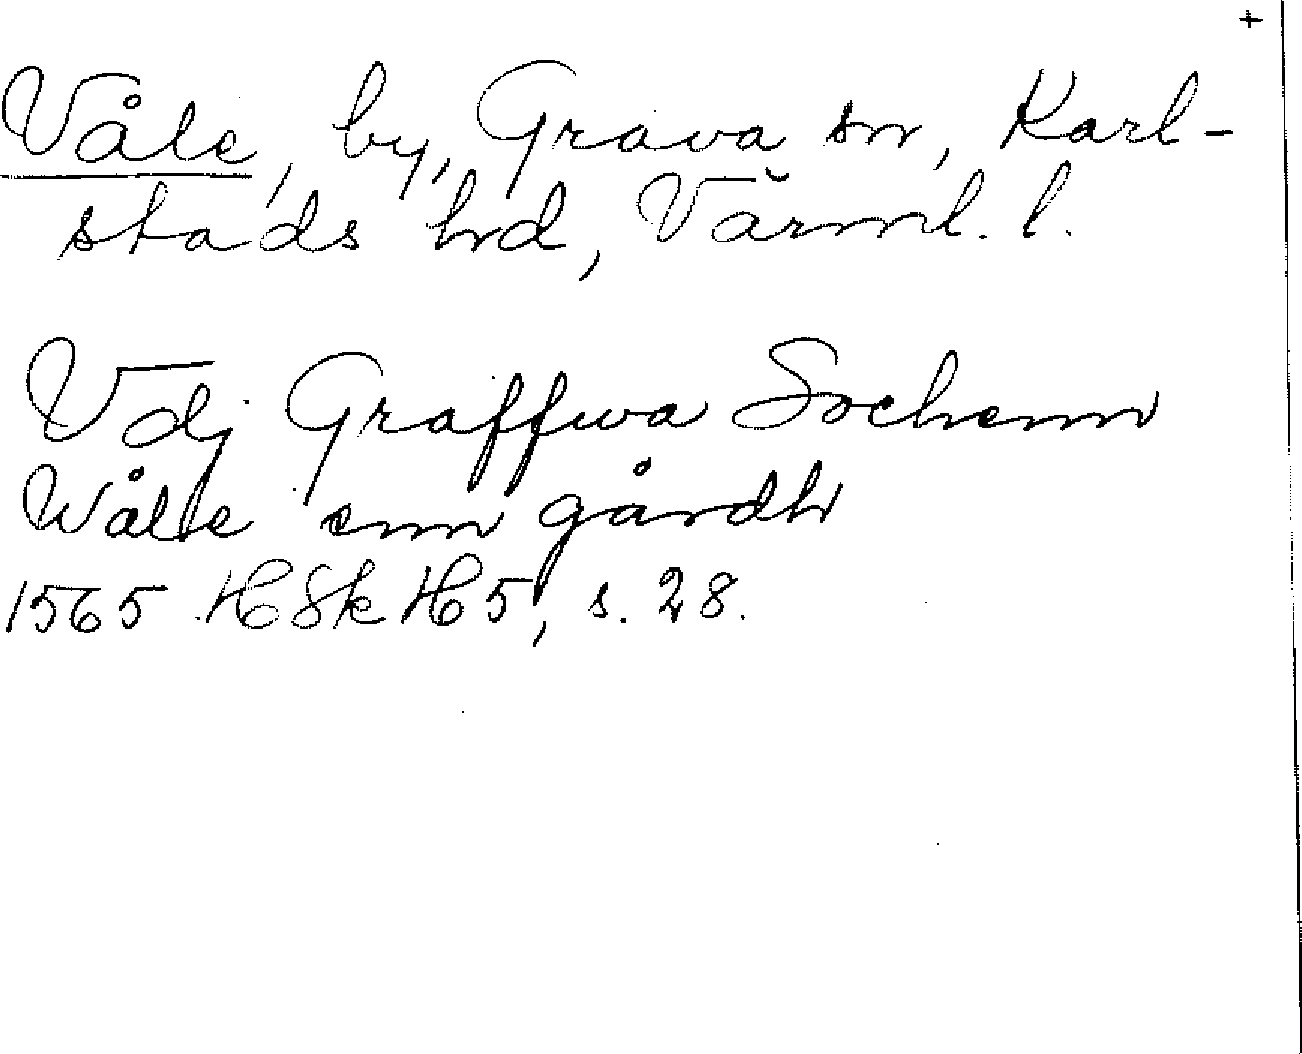 +
Våle, by, Grava sn, Karl-
stads hrd, Värml. l.
Vdj Graffwa Sochenn
Wålle enn gårdh
1565 HSkH5, s. 28.